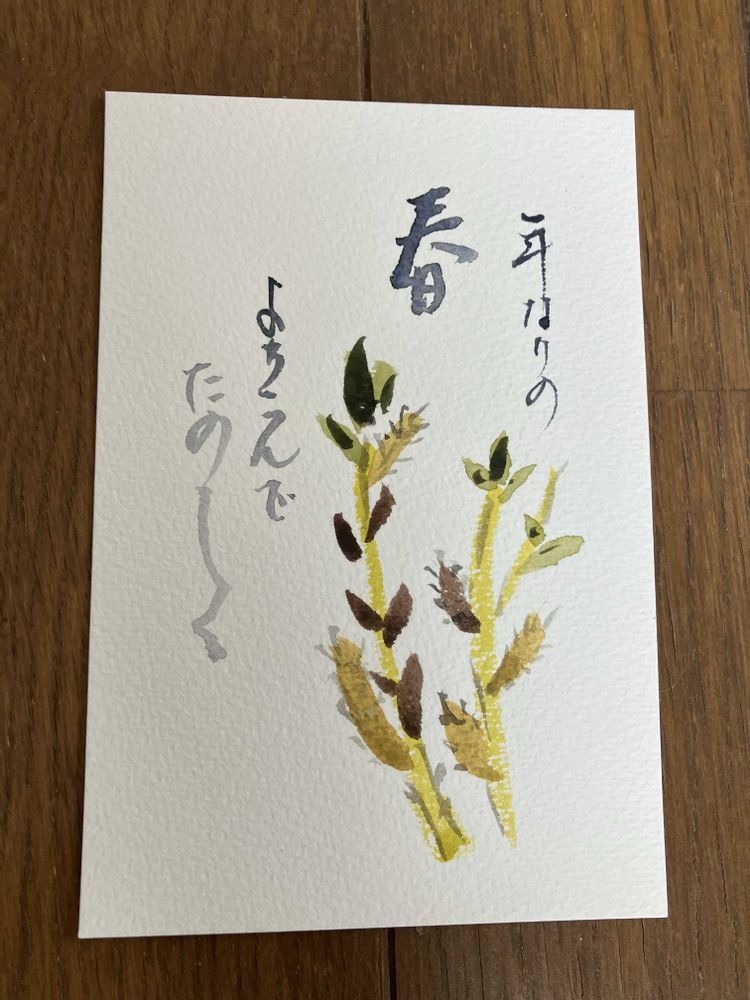 年なりの
春
よろこんで
たのしく